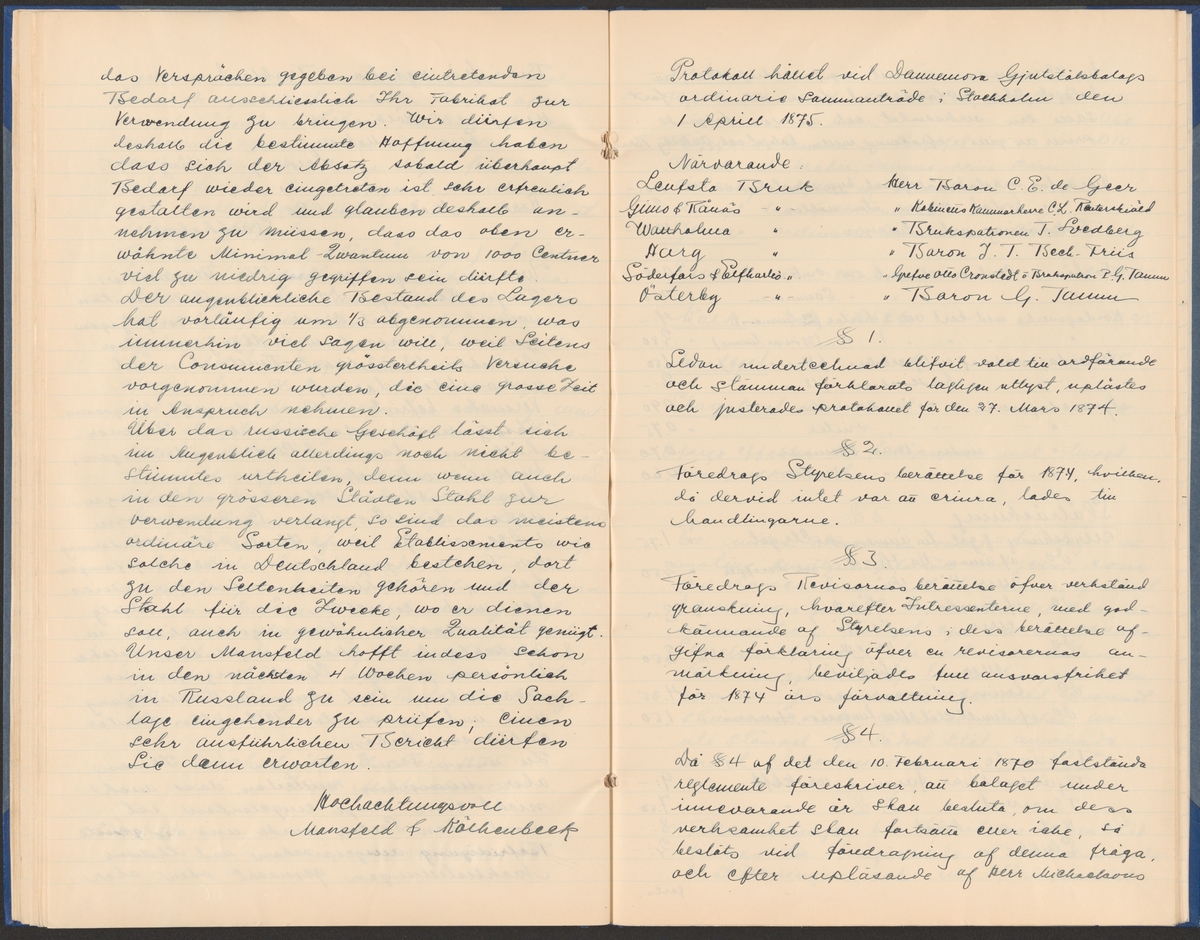 das Versprächen gegeben bei eintretenden
Bedarf ausschliesslich Ihr Fabrikat zur
Verwendung zu bringen. Wir dürfen
deshalb die bestimmte Hoffnung haben
dass sich der Absatz sobald überhaupt
Bedarf wieder eingetreten ist sehr erfreulich
gestalten wird und glauben deshalb an-
nehmen zu müssen, dass das oben er-
wähnte Minimal-Quantum von 1000 Centner
viel zu niedrig gegriffen sein dürfte.
Der augenblickliche Bestand des Lagers
hat vorläufig um 1/3 abgenommen, was
immerhin viel sagen will, weil Seitens
der Consumenten grösstertheils Versuche
vorgenommen wurden, die eine grosse Zeit
in Anspruch nehmen.
Über das russische Geschäft lässt sich
im Augenblick allerdings noch nicht be-
stimmtes urtheilen, denn wenn auch
in den grösseren Städten Stahl zur
verwendung verlangt, so sind das meistens
ordinäre Sorten, weil Etablissements wie
solche in Deutschland bestehen, dort
zu den Seltenheiten gehören und der
Stahl für die Zwecke, wo er dienen
soll, auch in gewöhnlicher Qualität genügt.
Unser Mansfeld hofft indess schon
in den nächsten 4 Wochen persönlich
in Russland zu sein um die Sach-
lage eingehender zu prüfen; einen
sehr ausführlichen Bericht dürfen
Sie denn erwarten.
Hochachtungsvoll
Mansfeld & Köthenbeck
Protokoll hållet vid Dannemora Gjutstålsbolags
ordinarie Sammanträde i Stockholm den
1 Aprill 1875.
Närvarande:
Leufsta Bruk Herr Baron C. E. de Geer
Gimo & Rånäs " " Kabinetts Kammarherre C. L. Reuterskiöld
Wattholma " " Brukspationen T. Svedberg
Harg " " Baron J. T. Beck-Friis
Söderfors & Elfkarleö " " Grefve Otto Cronstedt o Brukspatron P. G. Tamm
Österby " " Baron G. Tamm
§ 1.
Sedan undertecknad blifvit vald till ordförande
och stämman förklarats lagligen utlyst, uplästes
och justerades protokollet för den 27. Mars 1874.
§ 2.
Föredrogs Styrelsens berättelse för 1874, hvilken,
då dervid intet var att erinra, lades till
handlingarne.
§ 3.
Föredrogs Revisornas berättelse öfver verkstäld
granskning, hvarefter Intressenterne, med god-
kännande af Styrelsens i dess berättelse af-
gifna förklaring öfver en revisorernas an-
märkning, beviljades full ansvarsfrihet
för 1874 års förvaltning.
§ 4.
Då § 4 af det den 10. Februari 1870 fastställda
reglemente föreskriver, att bolaget under
innevarande år skall besluta, om dess
verksamhet skall fortsätta eller icke, så
beslöts vid föredragning af denna fråga,
och efter upläsande af Herr Michaelsons